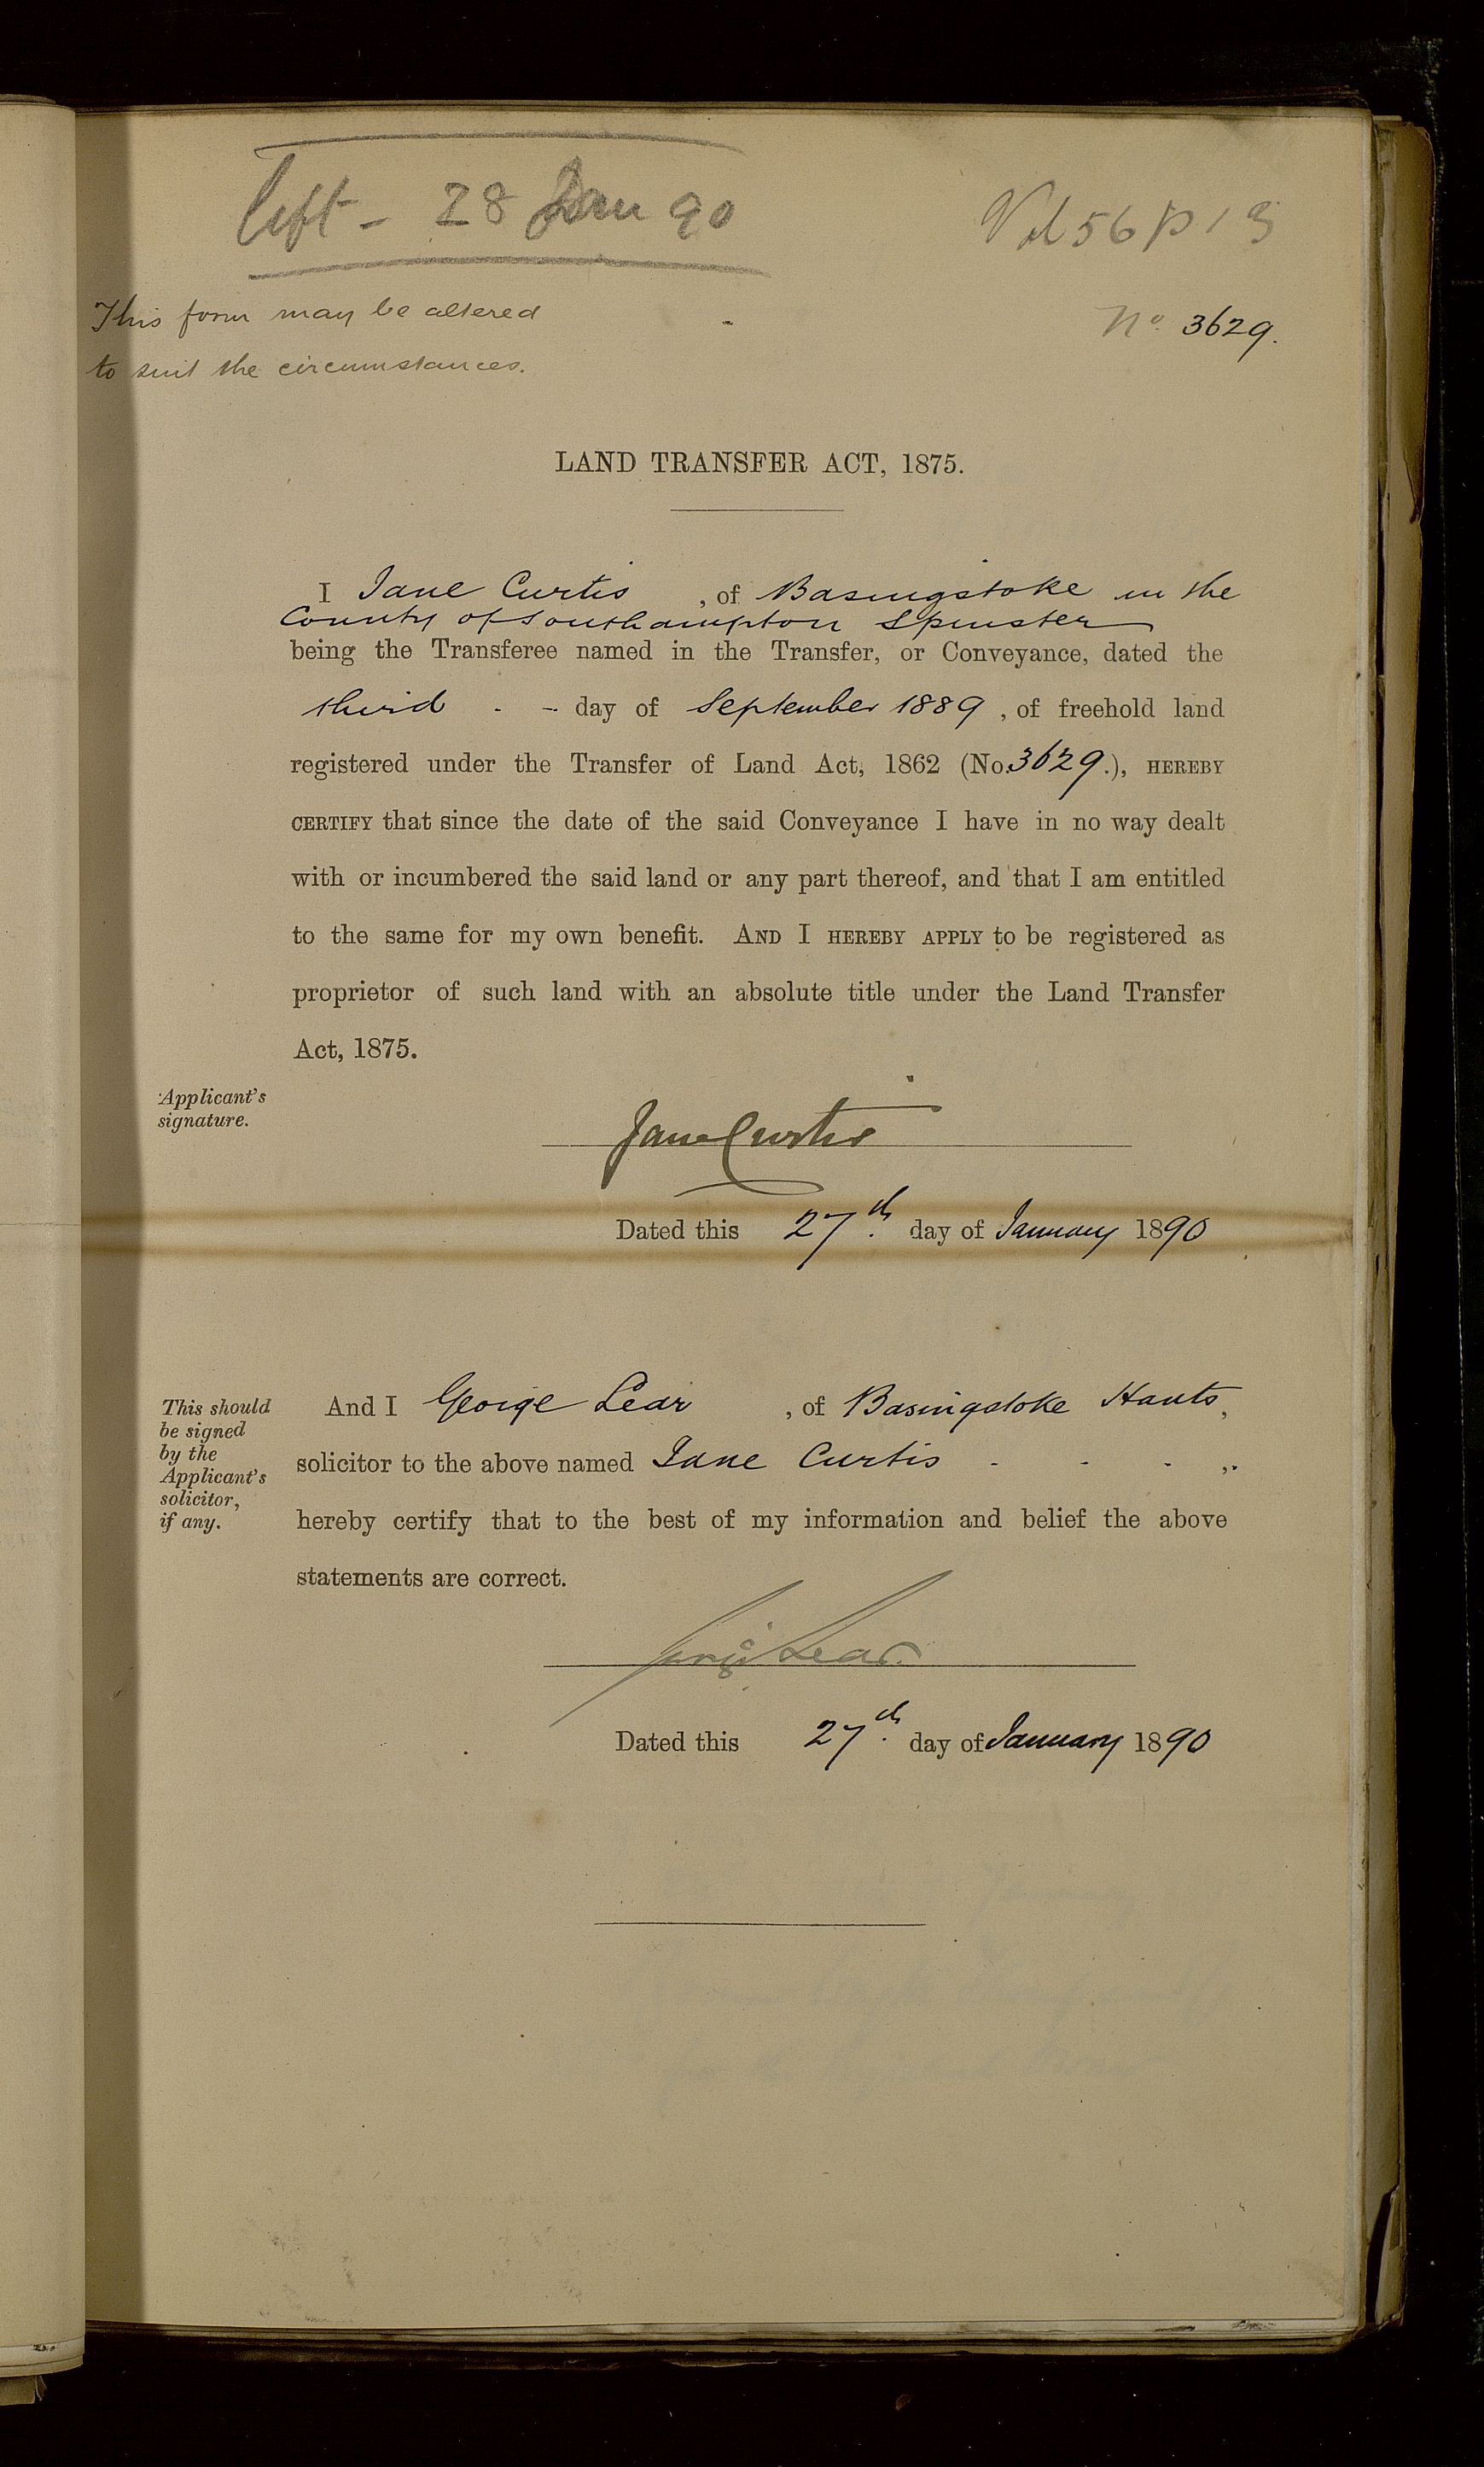 left - 28 Jan 90
Vol 56 p 13
This form may be altered
to suit the circumstances.
No. 3629.
LAND TRANSFER ACT, 1875.
I Jane Curtis , of Basingstoke in the
County of Southampton Spinster
being the Transferee named in the Transfer, or Conveyance, dated the
third - - day of September 1889 , of freehold land
registered under the Transfer of Land Act, 1862 (No. 3629.), HEREBY
CERTIFY that since the date of the said Conveyance I have in no way dealt
with or incumbered the said land or any part thereof, and that I am entitled
to the same for my own benefit. AND I HEREBY APPLY to be registered as
proprietor of such land with an absolute title under the Land Transfer
Act, 1875.
Applicant's
signature.
Jane Curtis
Dated this 27th. day of January 1890
This should
be signed
by the
Applicant's
solicitor,
if any.
And I George Lear , of Basingstoke Hants,
solicitor to the above named Jane Curtis - - - ,
hereby certify that to the best of my information and belief the above
statements are correct.
George Lear.
Dated this 27th. day of January 1890